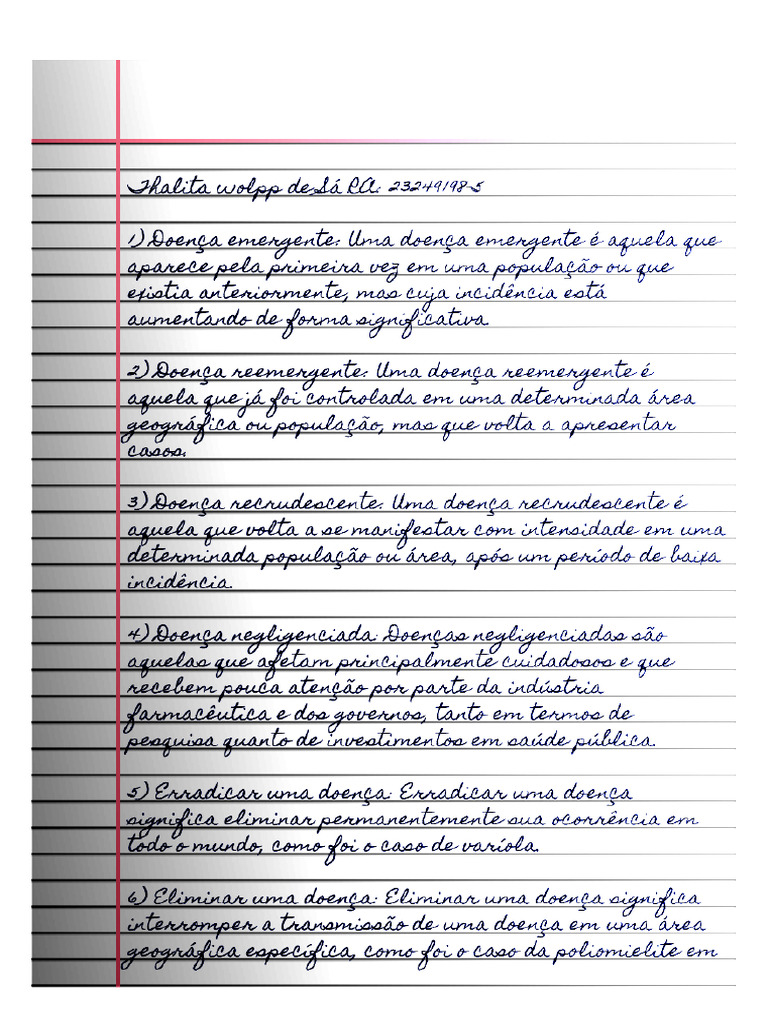 Thalita wolpp de Sá RA: 23249198-5
1) Doença emergente: Uma doença emergente é aquela que
aparece pela primeira vez em uma população ou que
existia anteriormente, mas cuja incidência está
aumentando de forma significativa.
2) Doença reemergente: Uma doença reemergente é
aquela que já foi controlada em uma determinada área
geográfica ou população, mas que volta a apresentar
casos.
3) Doença recrudescente: Uma doença recrudescente é
aquela que volta a se manifestar com intensidade em uma
determinada população ou área, após um período de baixa
incidência.
4) Doença negligenciada: Doenças negligenciadas são
aquelas que afetam principalmente cuidadosos e que
recebem pouca atenção por parte da indústria
farmacêutica e dos governos, tanto em termos de
pesquisa quanto de investimentos em saúde pública.
5) Erradicar uma doença: Erradicar uma doença
significa eliminar permanentemente sua ocorrência em
todo o mundo, como foi o caso de varíola.
6) Eliminar uma doença: Eliminar uma doença significa
interromper a transmissão de uma doença em uma área
geográfica específica, como foi o caso da poliomielite em